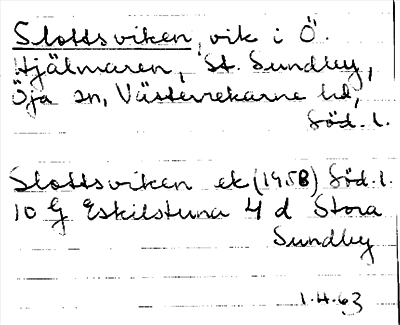 Slottsviken, vik i Ö.
Hjälmaren, St. Sundby,
Öja sn, Västerrekarne hd,
Söd. l.
Slottsviken ek (1958) Söd. l.
10 G Eskilstuna 4 d Stora
Sundby
1.4.63